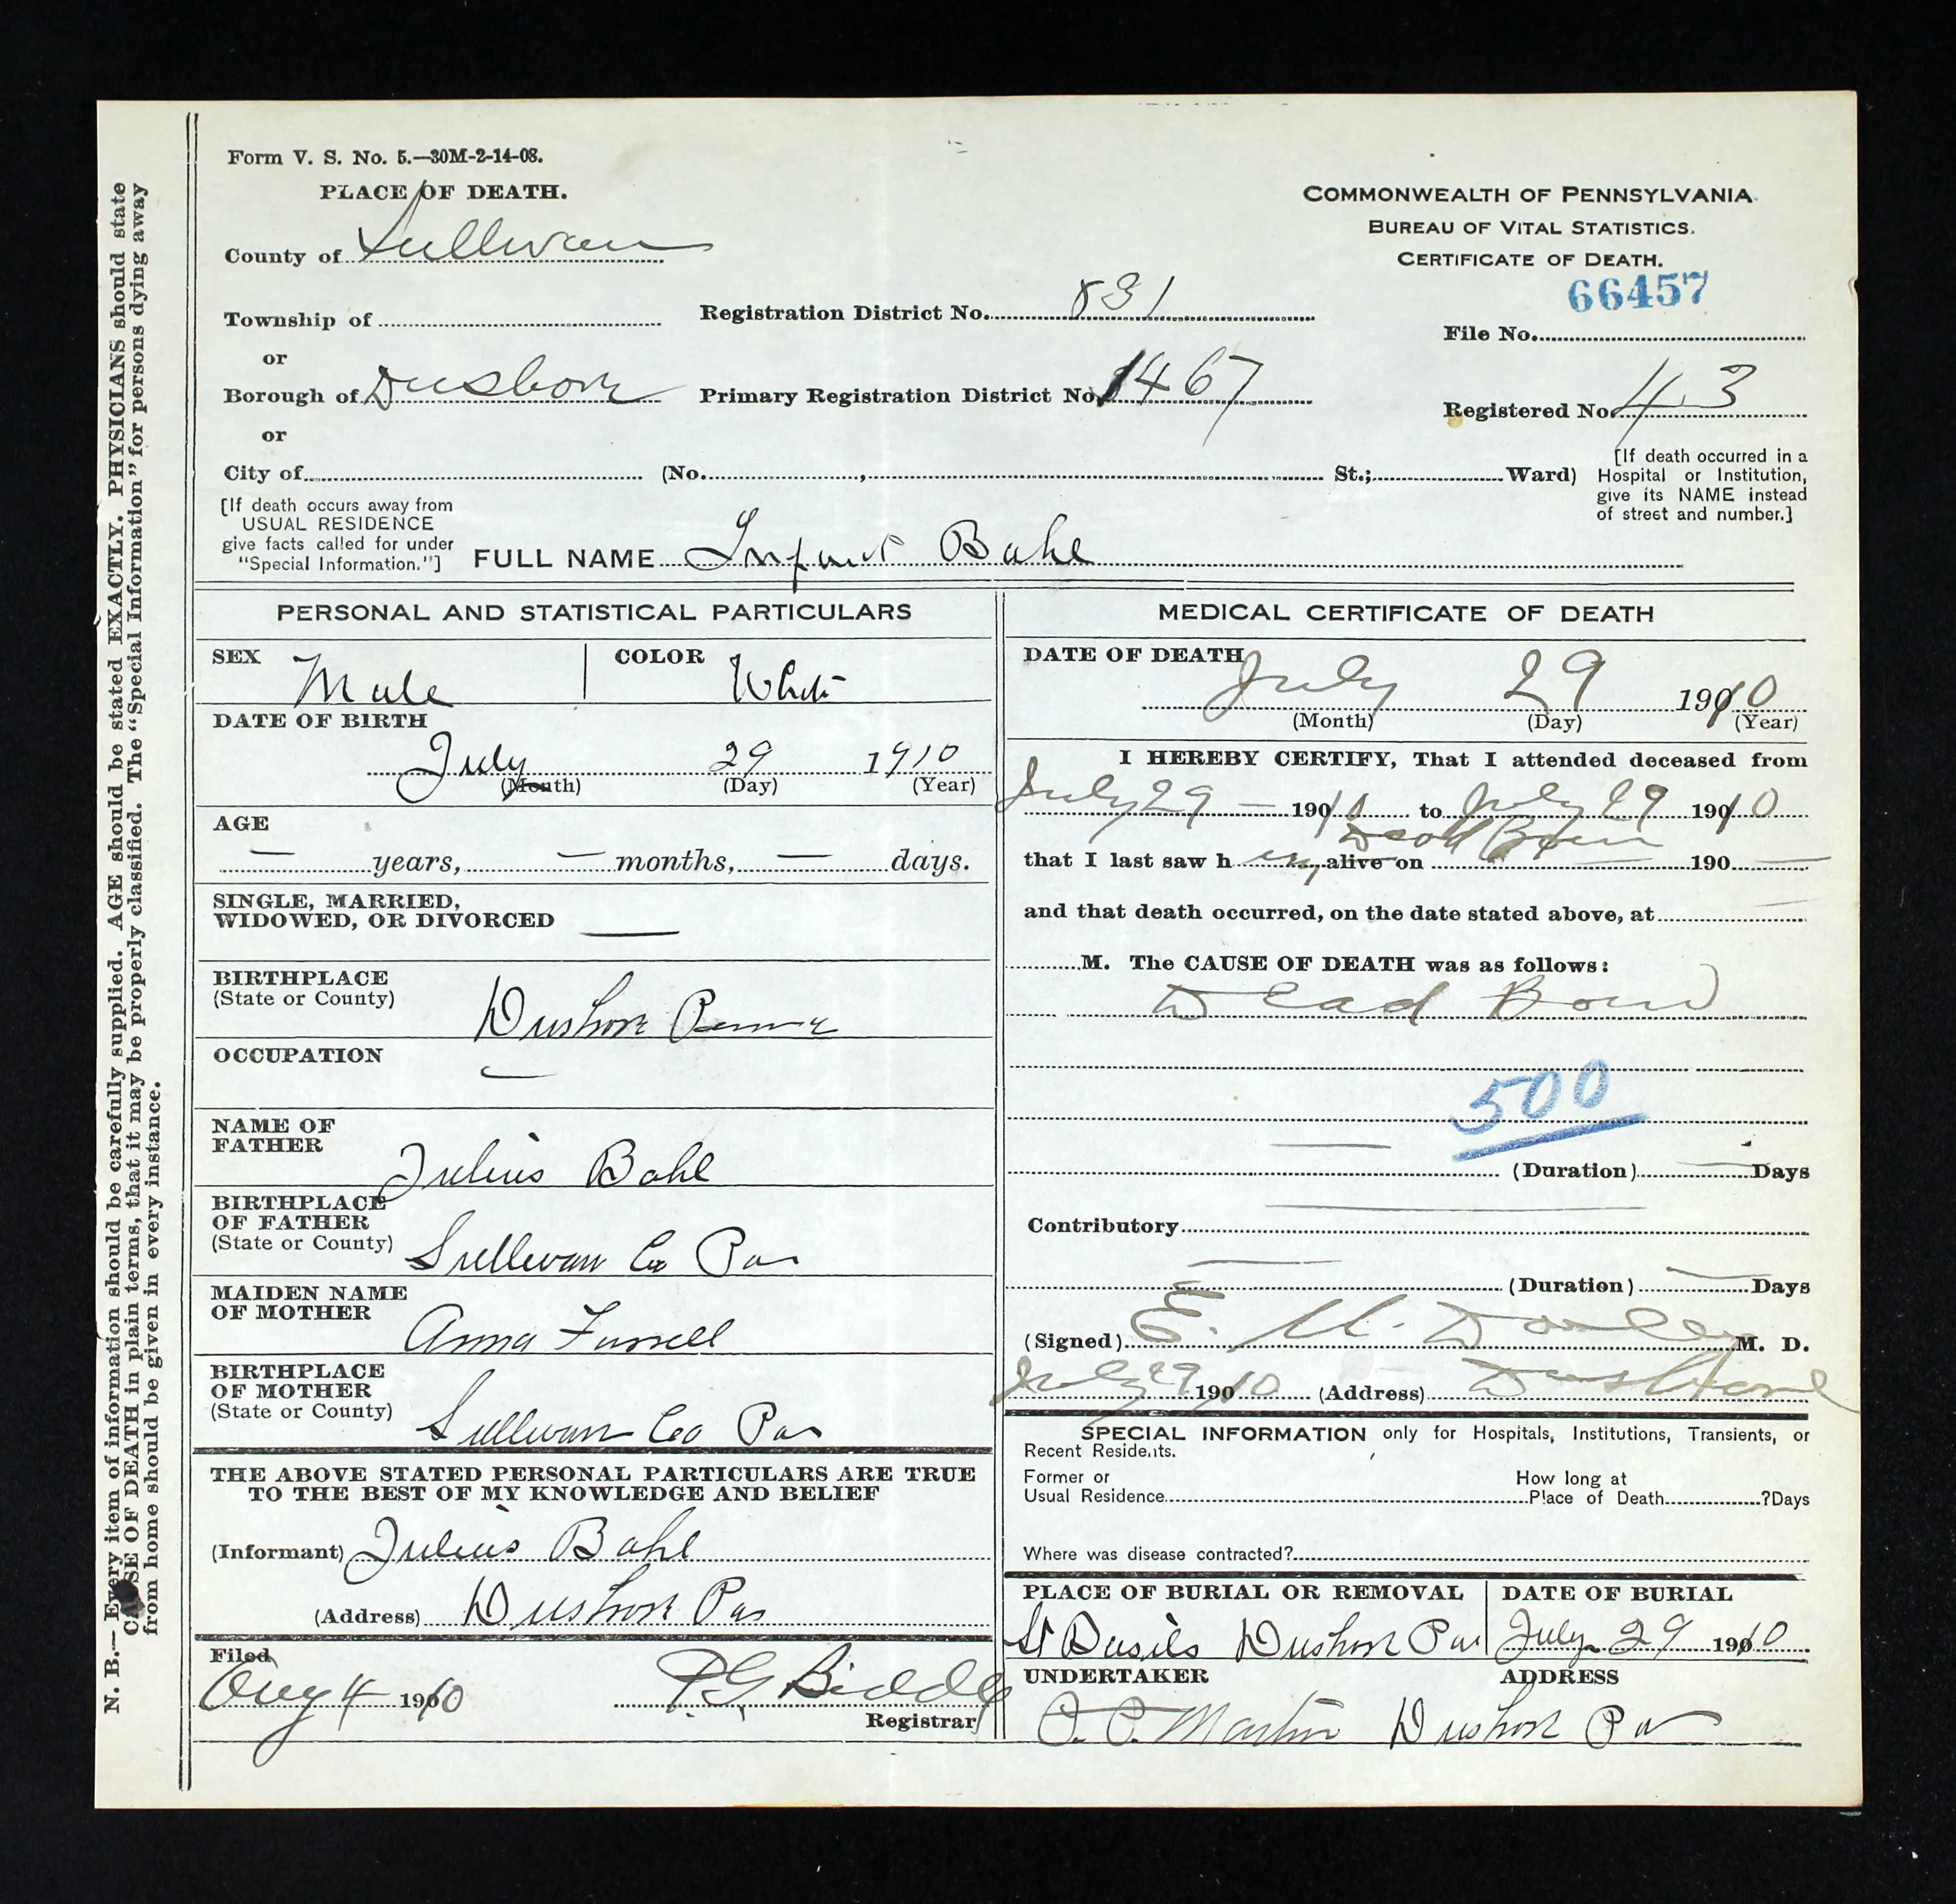 Form V. S. No. 5.—30M-2-14-08.
PLACE OF DEATH.
County of Sullivan
Township of
or
Borough of Dushore
or
City of (No. , St.; Ward)
Registration District No. 831
Primary Registration District No. 1467
COMMONWEALTH OF PENNSYLVANIA
BUREAU OF VITAL STATISTICS.
CERTIFICATE OF DEATH.
66457
File No.
Registered No. 43
[If death occurred in a
Hospital or Institution,
give its NAME instead
of street and number.]
[If death occurs away from
USUAL RESIDENCE
give facts called for under
"Special Information."]
FULL NAME Infant Bahl
PERSONAL AND STATISTICAL PARTICULARS
SEX Male COLOR White
DATE OF BIRTH
July 29 1910
(Month) (Day) (Year)
AGE
— years, — months, — days.
SINGLE, MARRIED,
WIDOWED, OR DIVORCED —
BIRTHPLACE
(State or County) Dushore Penna
OCCUPATION —
NAME OF
FATHER Julius Bahl
BIRTHPLACE
OF FATHER
(State or County) Sullivan Co Pa
MAIDEN NAME
OF MOTHER Anna Farrell
BIRTHPLACE
OF MOTHER
(State or County) Sullivan Co Pa
THE ABOVE STATED PERSONAL PARTICULARS ARE TRUE
TO THE BEST OF MY KNOWLEDGE AND BELIEF
(Informant) Julius Bahl
(Address) Dushore Pa
Filed
Aug 4 1910 P. G. Biddle
Registrar
MEDICAL CERTIFICATE OF DEATH
DATE OF DEATH
July 29 1910
(Month) (Day) (Year)
I HEREBY CERTIFY, That I attended deceased from
July 29 — 1910 to July 29 1910
Dead Born
that I last saw h im alive on 190 —
and that death occurred, on the date stated above, at —
M. The CAUSE OF DEATH was as follows:
Dead Born
500
(Duration) — Days
Contributory
(Duration) — Days
(Signed) E. M. M. D.
July 29 1910 (Address) Dushore
SPECIAL INFORMATION only for Hospitals, Institutions, Transients, or
Recent Residents.
Former or
Usual Residence
How long at
Place of Death ?Days
Where was disease contracted?
PLACE OF BURIAL OR REMOVAL DATE OF BURIAL
St Basils Dushore Pa July 29 1910
UNDERTAKER ADDRESS
Martin Dushore Pa
N. B.—Every item of information should be carefully supplied. AGE should be stated EXACTLY. PHYSICIANS should state
CAUSE OF DEATH in plain terms, that it may be properly classified. The "Special Information" for persons dying away
from home should be given in every instance.